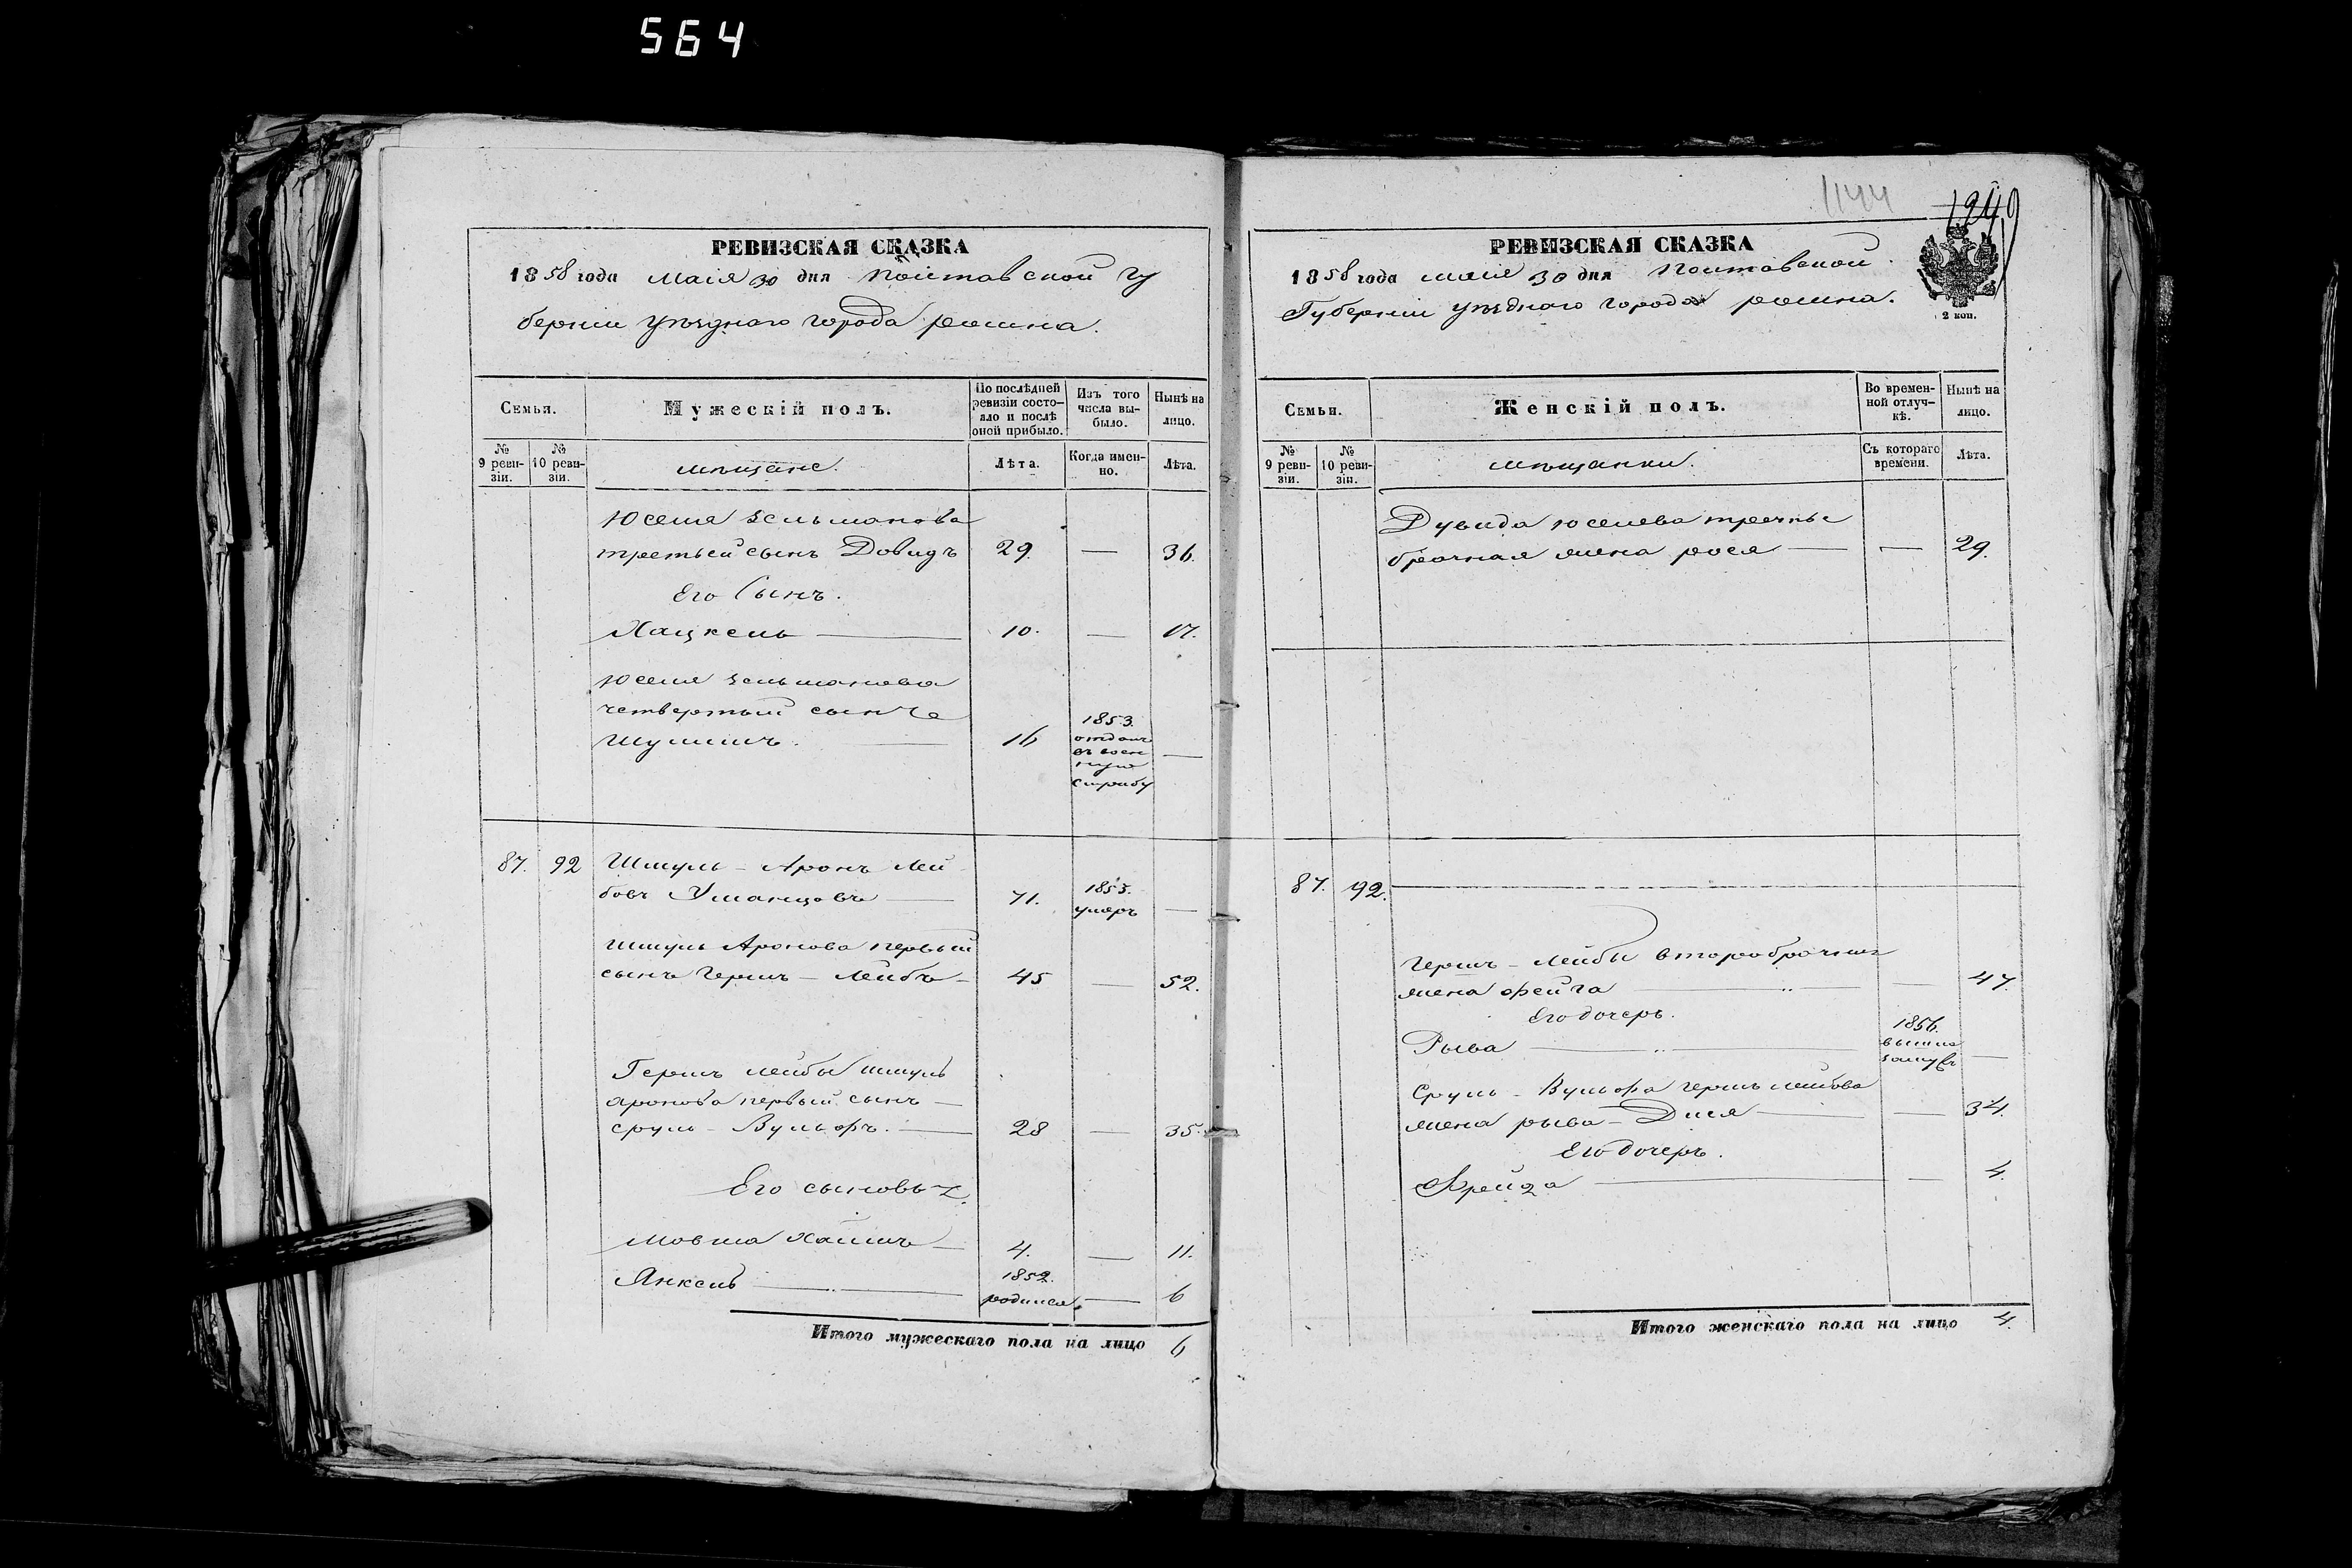 564
РЕВИЗСКАЯ СКАЗКА
1858 года Маія 30 дня Полтавской Гу
берніи уѣзднаго города ромна.
Семьи.
Мужескій полъ.
По послѣдней ревизіи состояло и послѣ оной прибыло.
Изъ того числа выбыло.
Нынѣ на лицо.
№ 9 ревизіи.
№ 10 ревизіи.
мѣщане.
Лѣта.
Когда именно.
Лѣта.
Юселя Зельманова
третьей сынъ Довидъ 29. — 36.
Его Сынъ.
Хацкель — 10. — 17.
Юселя Зельманова
четвертый сынъ
Шулимъ. — 16 1853. отданъ въ воен ную службу —
87. 92 Шмуль - Аронъ Лей
бовъ Уманцовъ — 71. 1855. умеръ —
Шмуль Аронова первый
сынъ Гершъ - Лейбъ - 45 — 52.
Гершъ Лейбы Шмуль
аронова первый сынъ —
сруль - Вульфъ. — 28 — 35.
Его сыновья
Мовша Хаимъ — 4. — 11.
Янкель — 1852. родился — 6
Итого мужескаго пола на лицо 6
1144
1249
РЕВИЗСКАЯ СКАЗКА
1858 года маія 30 дня Полтавской
Губерніи уѣзднаго города ромна.
2 коп.
Семьи.
Женскій полъ.
Во временной отлучкѣ.
Нынѣ на лицо.
№ 9 ревизіи.
№ 10 ревизіи.
мѣщанки.
Съ котораго времени.
Лѣта.
Дувида юселева третье
брачная жена рося — — 29.
87. 92. —
Гершъ - Лейбы второбрачная
жена Фейга — — 47.
Его дочерь.
Рыва — 1856. вышла замужъ —
Сруль - Вульфа гершъ лейбова
жена рыва - Дися — — 34.
Его дочерь.
Фрейда — — 4.
Итого женскаго пола на лицо 4.